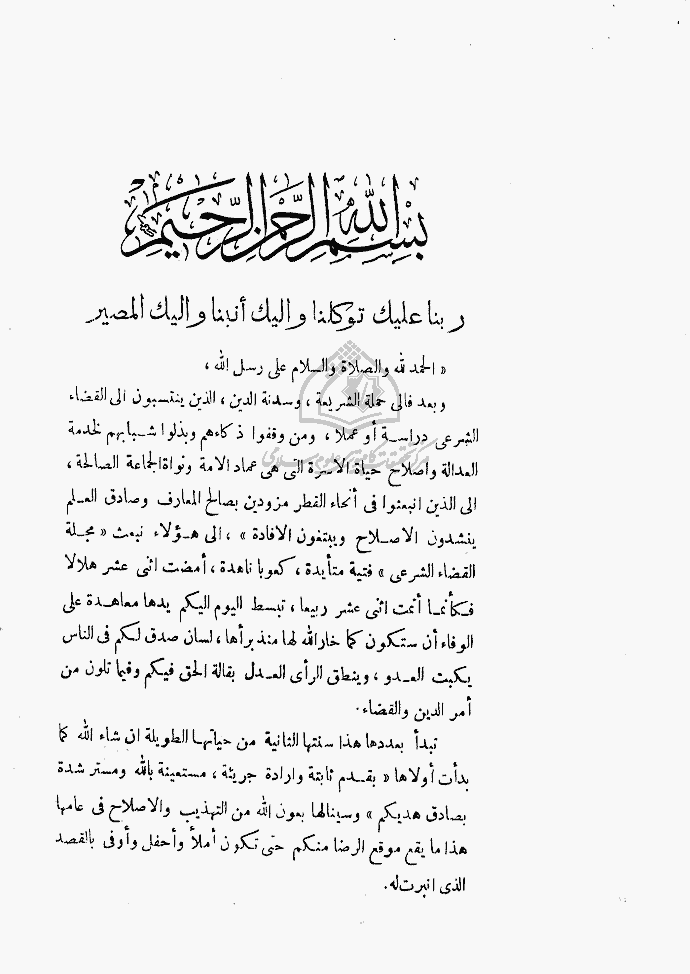 بسم الله الرحمن الرحيم
ربنا عليك توكلنا واليك أنبنا واليك المصير
« الحمد لله والصلاة والسلام على رسل الله ،
وبعد فالى حملة الشريعة ، وسدنة الدين ، الذين ينتسبون الى القضاء
الشرعى دراسة أو عملا ، ومن وقفوا ذكاءهم وبذلوا شبابهم لخدمة
العدالة واصلاح حياة الاسرة التى هى عماد الامة ونواة الجماعة الصالحة ،
الى الذين انبعثوا فى أنحاء القطر مزودين بصالح المعارف وصادق العلم
ينشدون الاصلاح ويبتغون الافادة » ، الى هؤلاء نبعث « مجلة
القضاء الشرعى » فتية متأيدة ، كعوبا ناهدة ، أمضت اثنى عشر هلالا
فكأنما أتمت اثنى عشر ربيعا ، تبسط اليوم اليكم يدها معاهدة على
الوفاء أن ستكون كما خار الله لها منذ برأها ، لسان صدق لكم فى الناس
يكبت العدو ، وينطق الرأى العدل بقالة الحق فيكم وفيما تلون من
أمر الدين والقضاء .
تبدأ بعددها هذا سنتها الثانية من حياتها الطويلة ان شاء الله كما
بدأت أولاها « بقدم ثابتة وارادة جريئة ، مستعينة بالله ومسترشدة
بصادق هديكم » وسينالها بعون الله من التهذيب والاصلاح فى عامها
هذا ما يقع موقع الرضا منكم حتى تكون أملأ وأحفل وأوفى بالقصد
الذى انبرت له .